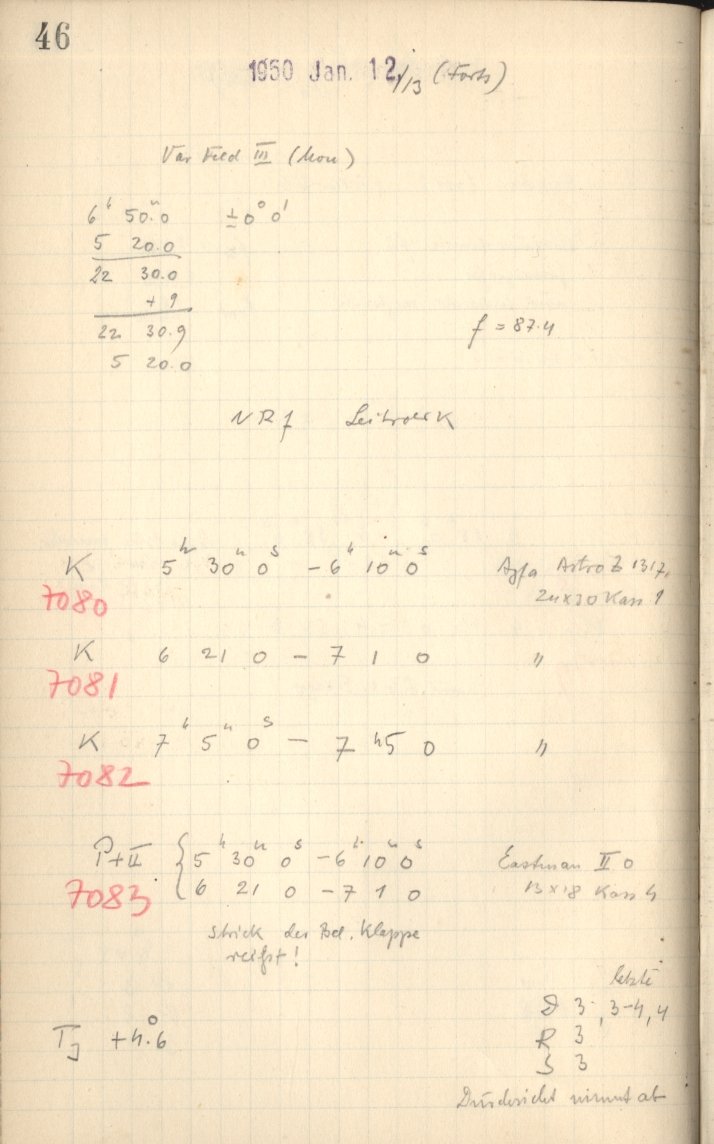 46
1950 Jan. 12/13 (Forts)
Var Feld III (Mon)
6ʰ 50ᵐ.0 ±0° 0'
5 20.0
22 30.0
+ 9
22 30.9
5 20.0
f = 87.4
NRf
K 5ʰ 30ᵐ 0ˢ – 6ʰ 10ᵐ 0ˢ Agfa Astro Z 1317,
7080 24x30 Kass 1
K 6 21 0 – 7 1 0 "
7081
K 7ʰ 5ᵐ 0ˢ – 7 45 0 "
7082
P+II { 5ʰ 30ᵐ 0ˢ – 6ʰ 10ᵐ 0ˢ Eastman II O
7083 6 21 0 – 7 1 0 13x18 Kass 4
Strick der Bel. Klappe
reißt!
letzte
D 3 , 3-4, 4
T_J +4°.6 R 3
S 3
Durchsicht nimmt ab